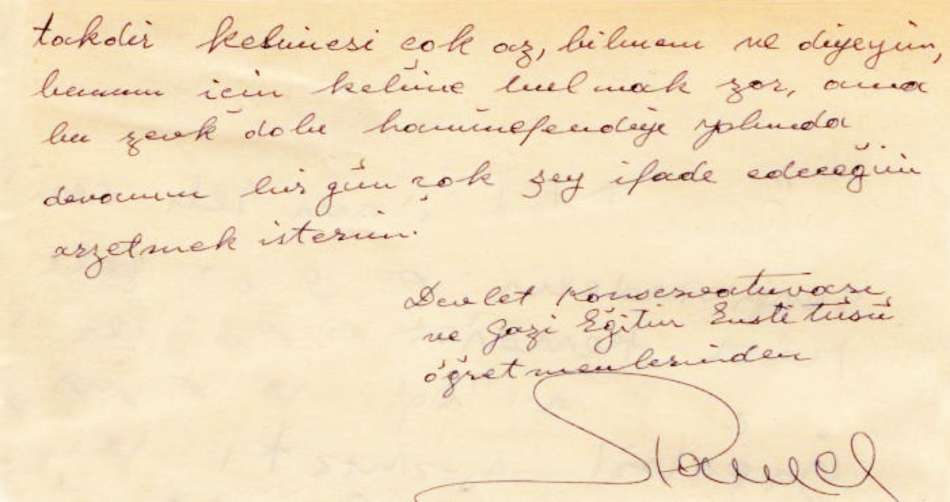 takdir kelimesi çok az, bilmem ne diyeyim,
bunun için kelime bulmak zor, ama
bu zevk hanımefendiye yolunda
devamın bir gün çok şey ifade edeceğini
arzetmek isterim.
Devlet Konservatuvarı
ve Gazi Eğitim Enstitüsü
öğretmenlerinden